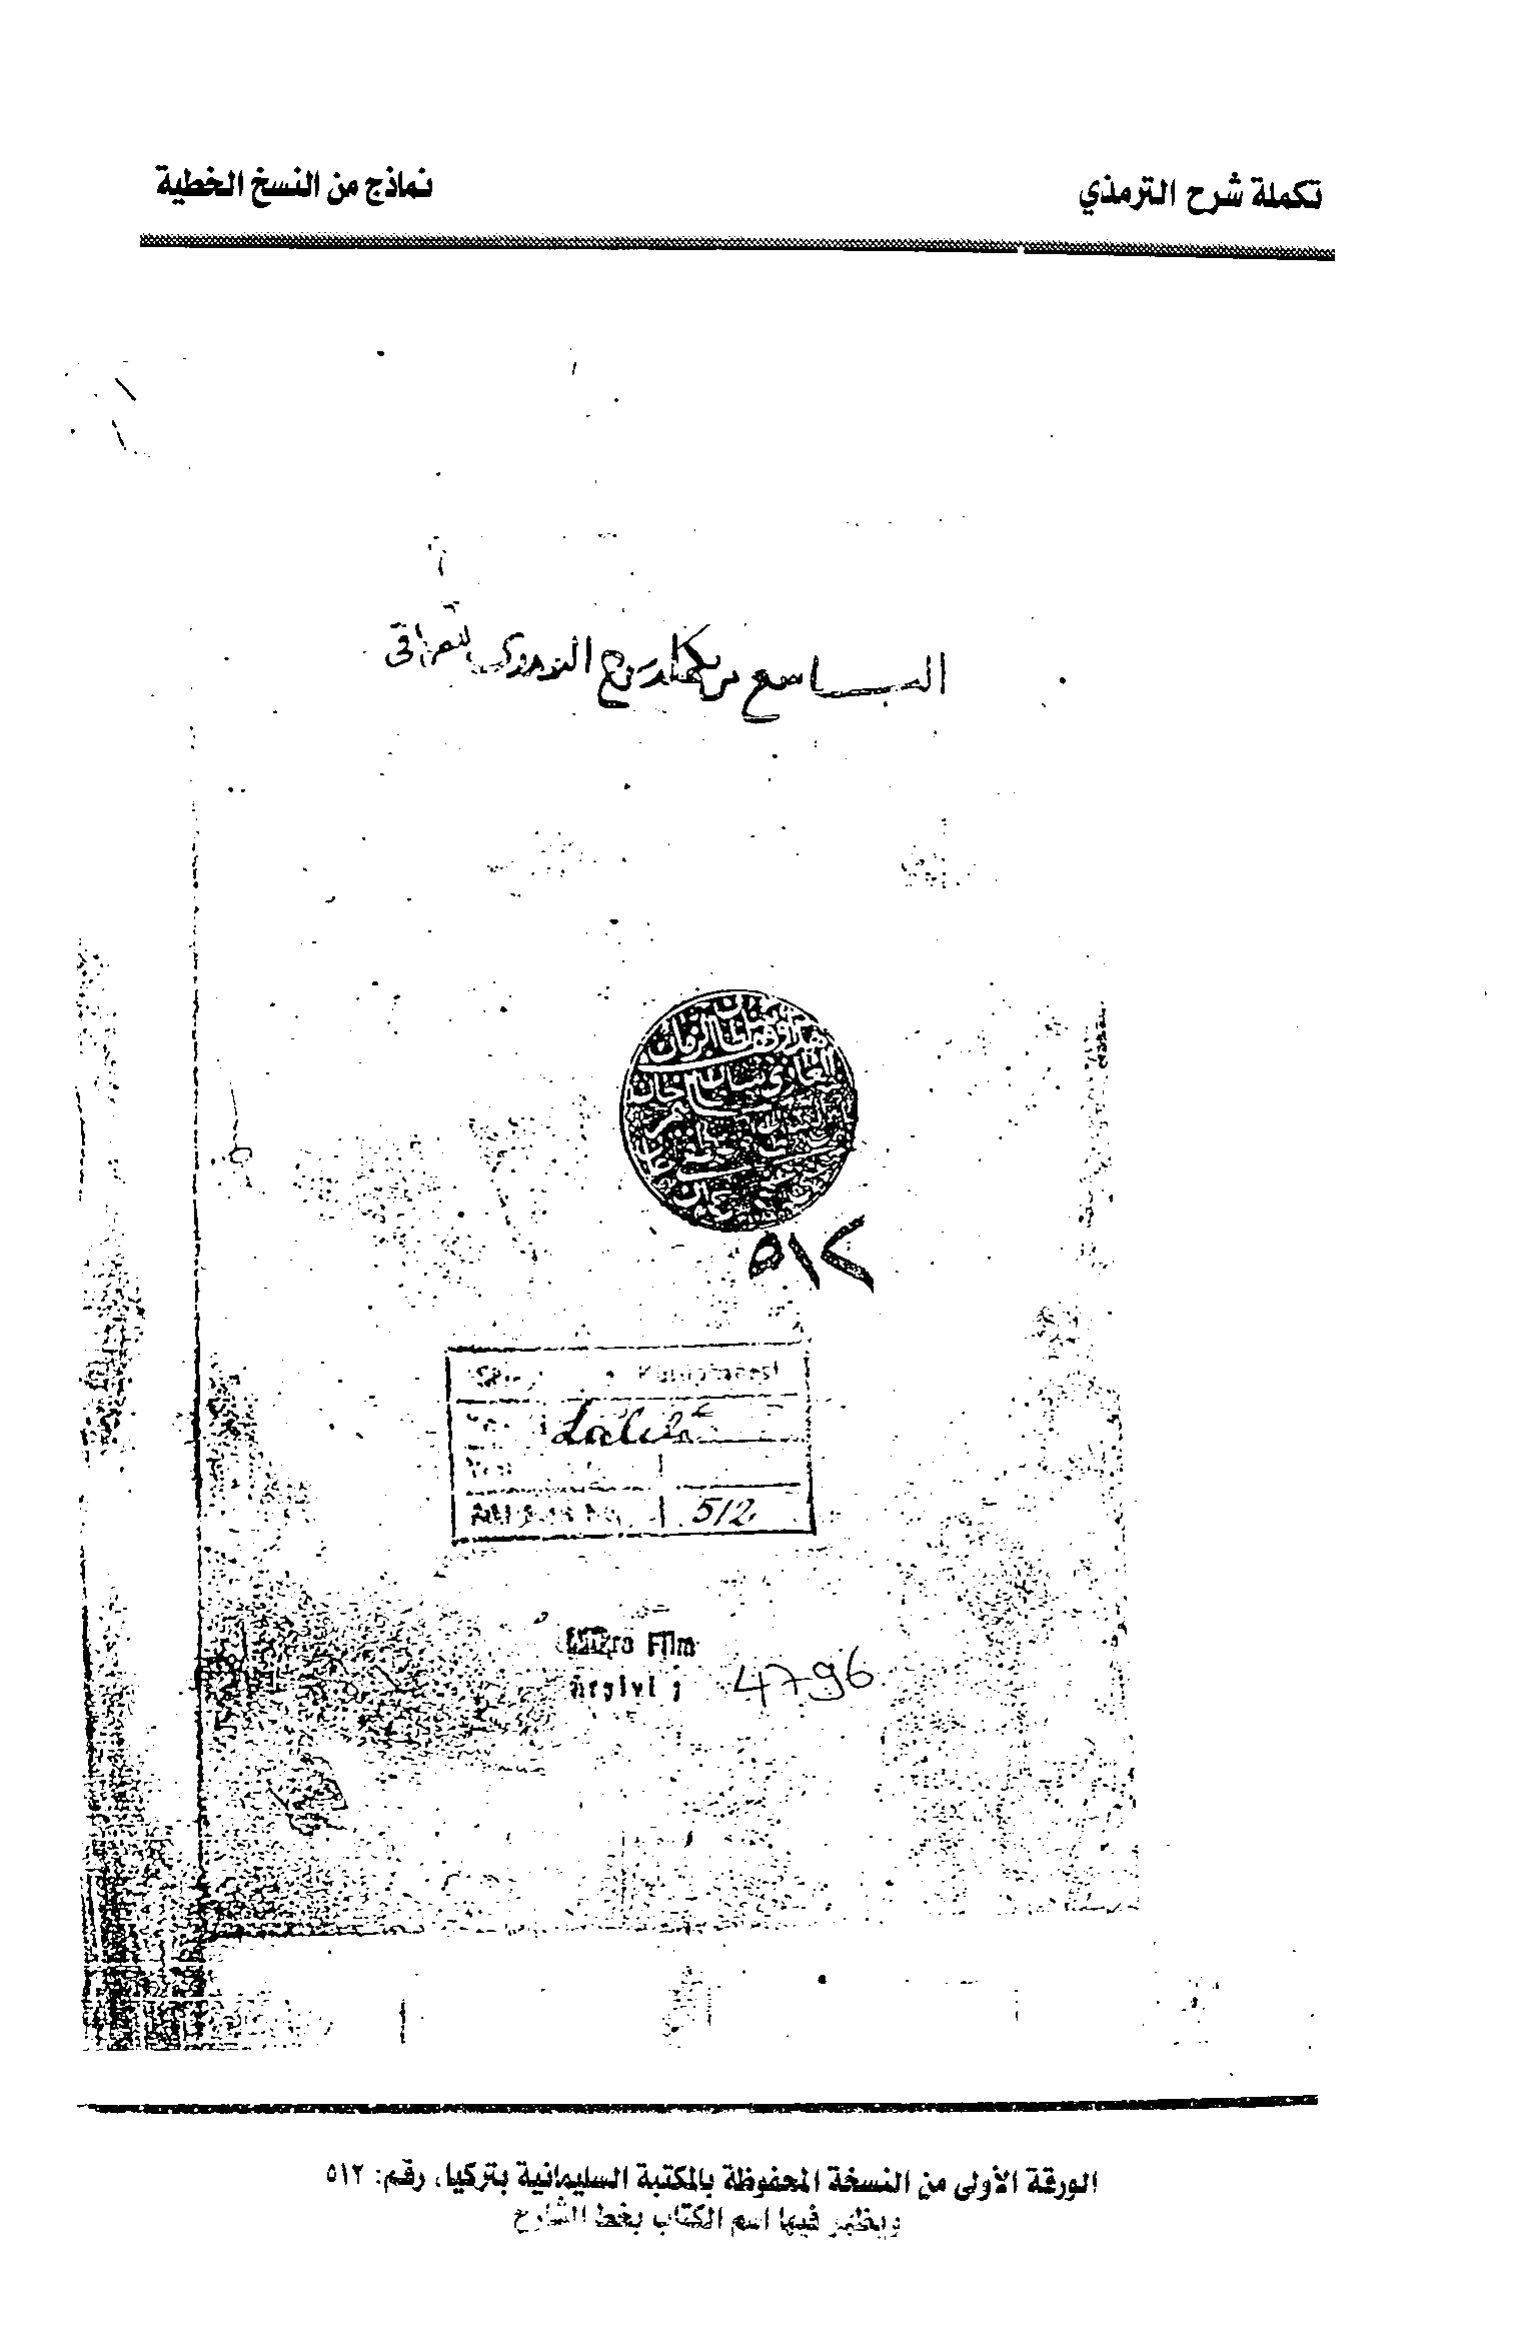 تكملة شرح الترمذي
نماذج من النسخ الخطية
التاسع من تكملة شرح الترمذي للعراقي
٥١٢
Kütüphanesi
Laleli
512
Mikro Film
Arşivi
4796
الورقة الأولى من النسخة المحفوظة بالمكتبة السليمانية بتركيا، رقم: ٥١٢
ويظهر فيها اسم الكتاب بخط الشارح